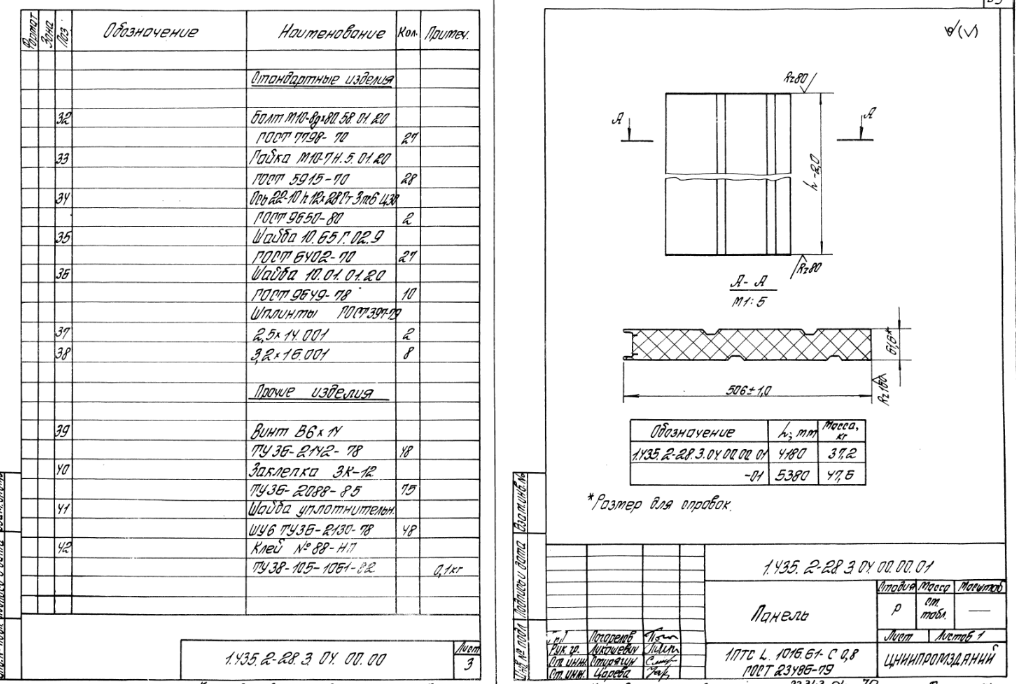 Формат
Зона
Поз.
Обозначение
Наименование
Кол.
Примеч.
Стандартные изделия
32 Болт М10-8g×80.58.01.20
ГОСТ 7798-70 27
33 Гайка М10-7Н.5.01.20
ГОСТ 5915-70 28
34 Ось 22-10 h 12×28
ГОСТ 9650-80 2
35 Шайба 10.65Г.02.9
ГОСТ 6402-70 27
36 Шайба 10.01.01.20
ГОСТ 9649-78 10
Шплинты ГОСТ 397-79
37 2,5×14.001 2
38 3,2×16.001 8
Прочие изделия
39 Винт В6×14
ТУ36-2142-78 48
40 Заклепка ЗК-12
ТУ36-2088-85 75
41 Шайба уплотнительн.
ШУ6 ТУ36-2130-78 48
42 Клей №88-НП
ТУ38-105-1061-82 0,1кг
1.435.2-28.3.04.00.00
Лист
3
(√)
Rz80
А
А
h-2,0
Rz80
А-А
М1:5
61,6*
506±1,0
Rz160
Обозначение h, мм Масса, кг
1.435.2-28.3.04.00.00.01 4180 37,2
-01 5380 47,6
*Размер для справок.
Подпись и дата
Взам.инв.№
Инв.№ подл.
1.435.2-28.3.04.00.00.01
Панель
Стадия Масса Масштаб
Р см. табл. —
Лист Листов 1
Погорелов
Рук.гр. Лукашевич
Ст.инж.
Ст.инж. Царева
1ПТС L.1016.61-С 0,8
ГОСТ 23486-79
ЦНИИПРОМЗДАНИЙ